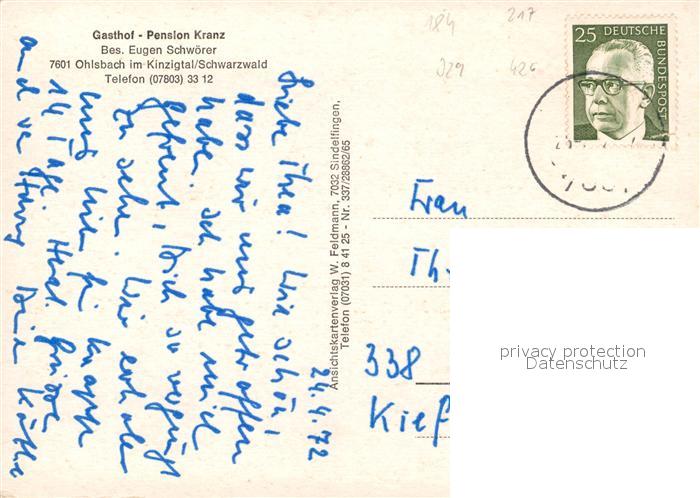 Gasthof - Pension Kranz
Bes. Eugen Schwörer
7601 Ohlsbach im Kinzigtal/Schwarzwald
Telefon (07803) 33 12
184 217
329 426
25 DEUTSCHE
BUNDESPOST
24.4.72
Liebe Thea! Wie schön,
dass wir uns getroffen
haben. Ich habe mich
gefreut, Dich so vergnügt
zu sehen. Wir erholen
uns hier für knapp
14 Tage. Herzl. Grüsse
auch von Harry Deine Käthe
Ansichtskartenverlag W. Feldmann, 7032 Sindelfingen,
Telefon (07031) 8 41 25 - Nr. 337/28862/65
Frau
Th.
338
Kief
privacy protection
Datenschutz